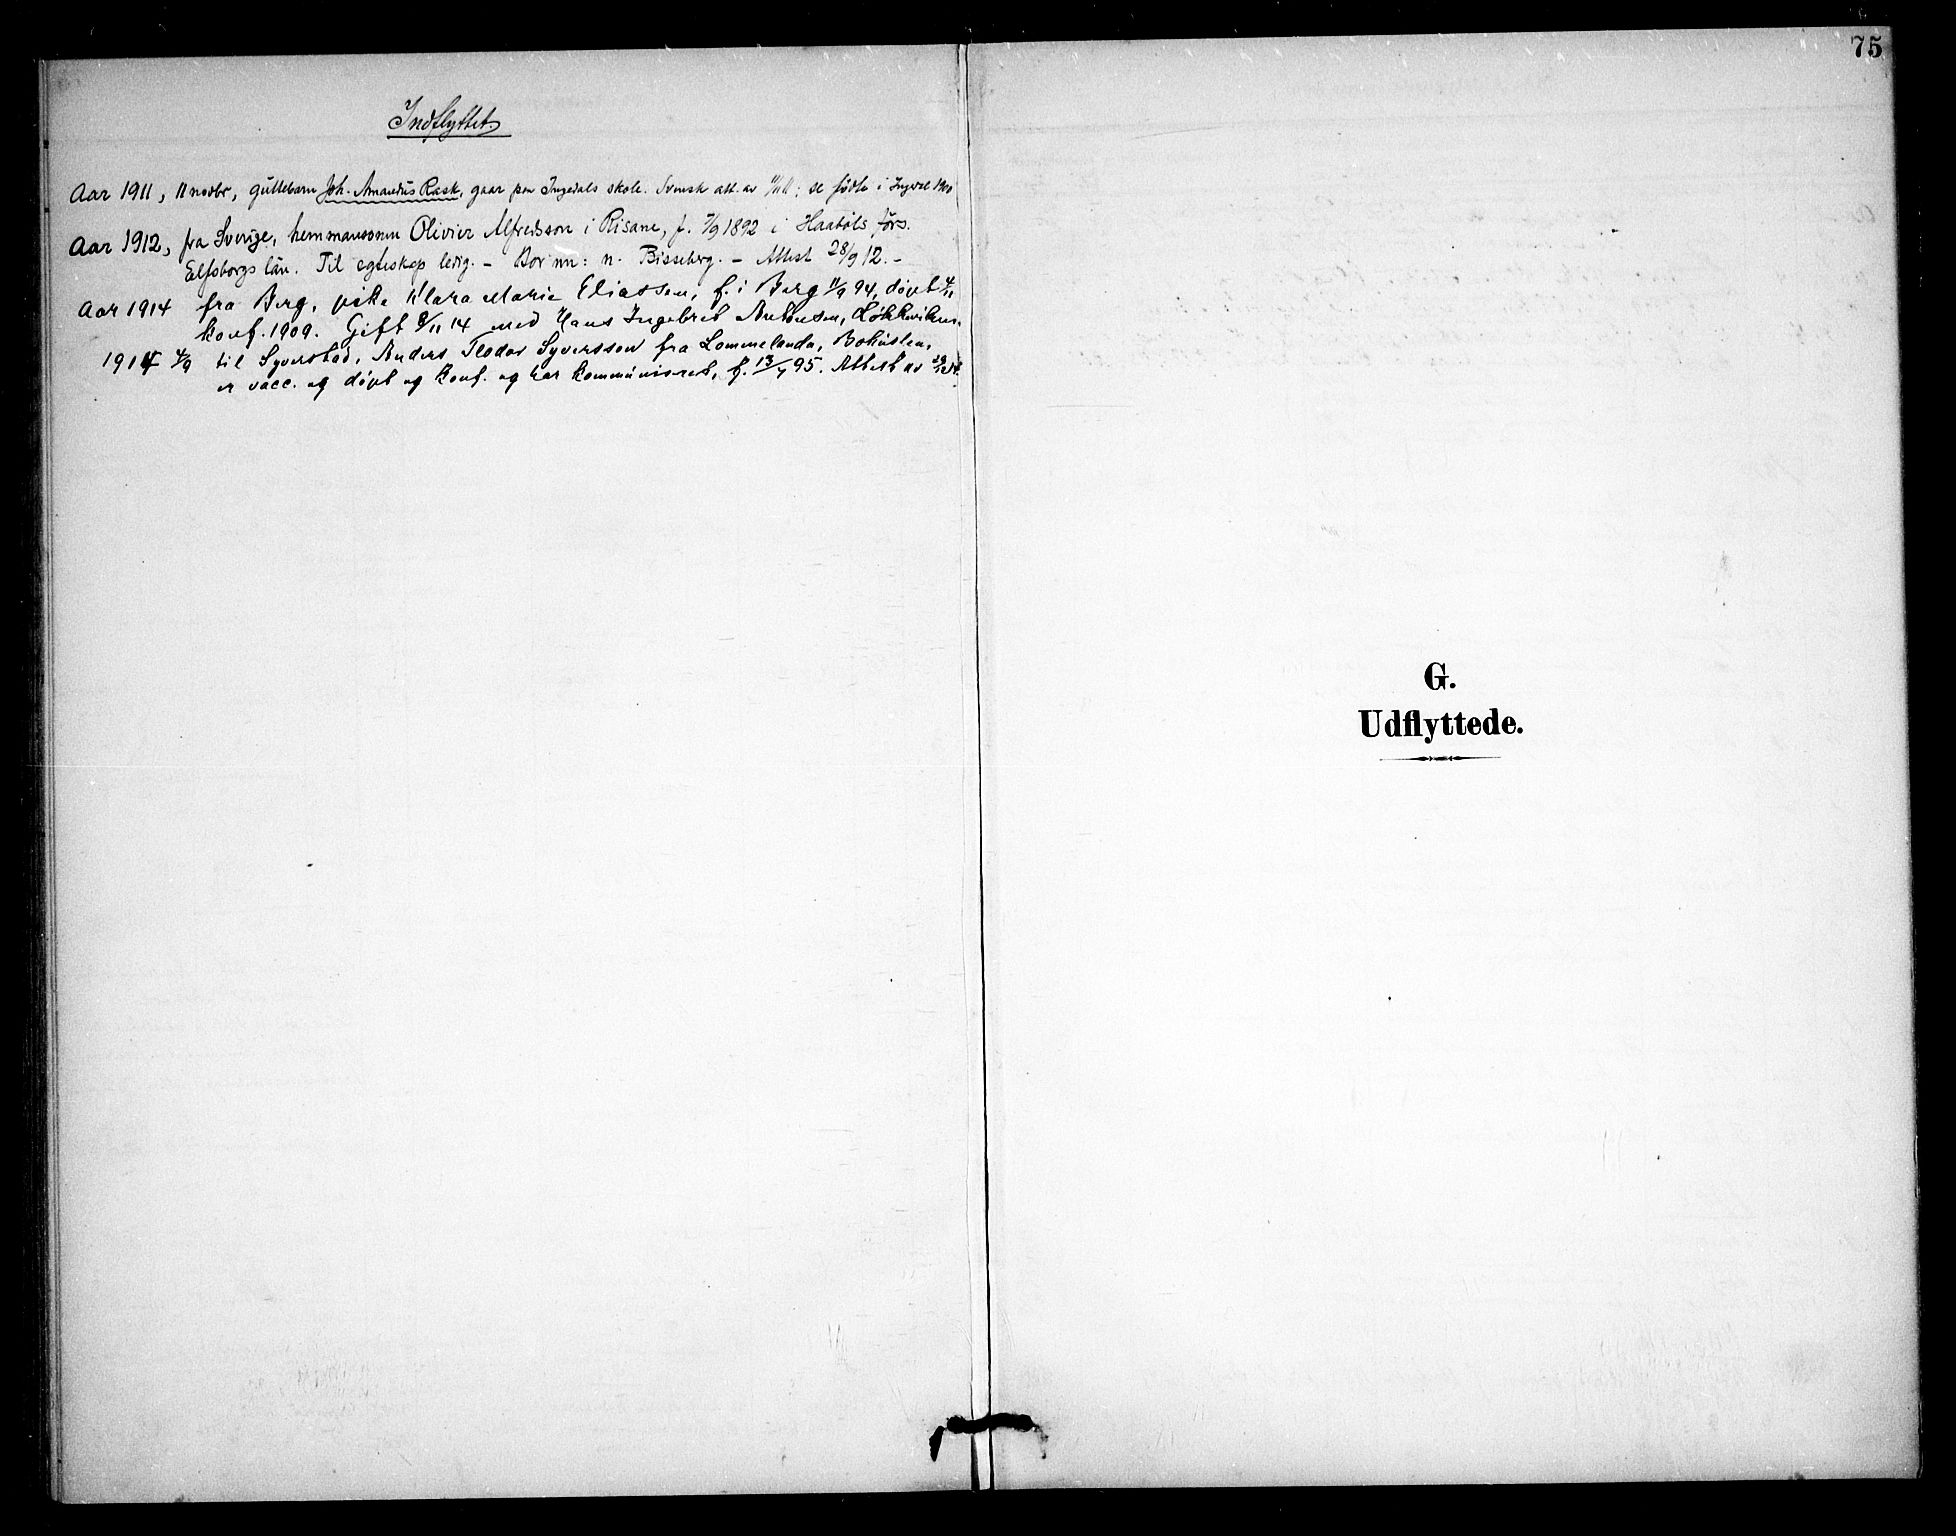 Indflyttet
Aar 1911, 11 novbr, guttebarn Joh. Amandus Rask, gaar paa Ingedals skole. Svensk att. av 11/11 11; se fødte i Ingedal 1900
Aar 1912, fra Sverige, hemmanssonen Olivier Alfredsson i Risane, f. 7/9 1892 i Haabóls förs.
Elfsborgs län. Til egteskap ledig. - Bor nu: n. Bisseberg. - Attest 28/9 12. -
Aar 1914 fra Berg, pike Klara Marie Eliassen, f. i Berg 11/9 94, døpt 4/11
konf. 1909. Gift 8/11 14 med Hans Ingebret Antonsen, Løkkeviken.
1914 4/9 til Syverstad, Anders Teodor Syversson fra Lommelanda, Bohuslen,
er vacc. og døpt og konf. og har kommuniseret, f. 13/7 95. Attest av
75
G.
Udflyttede.